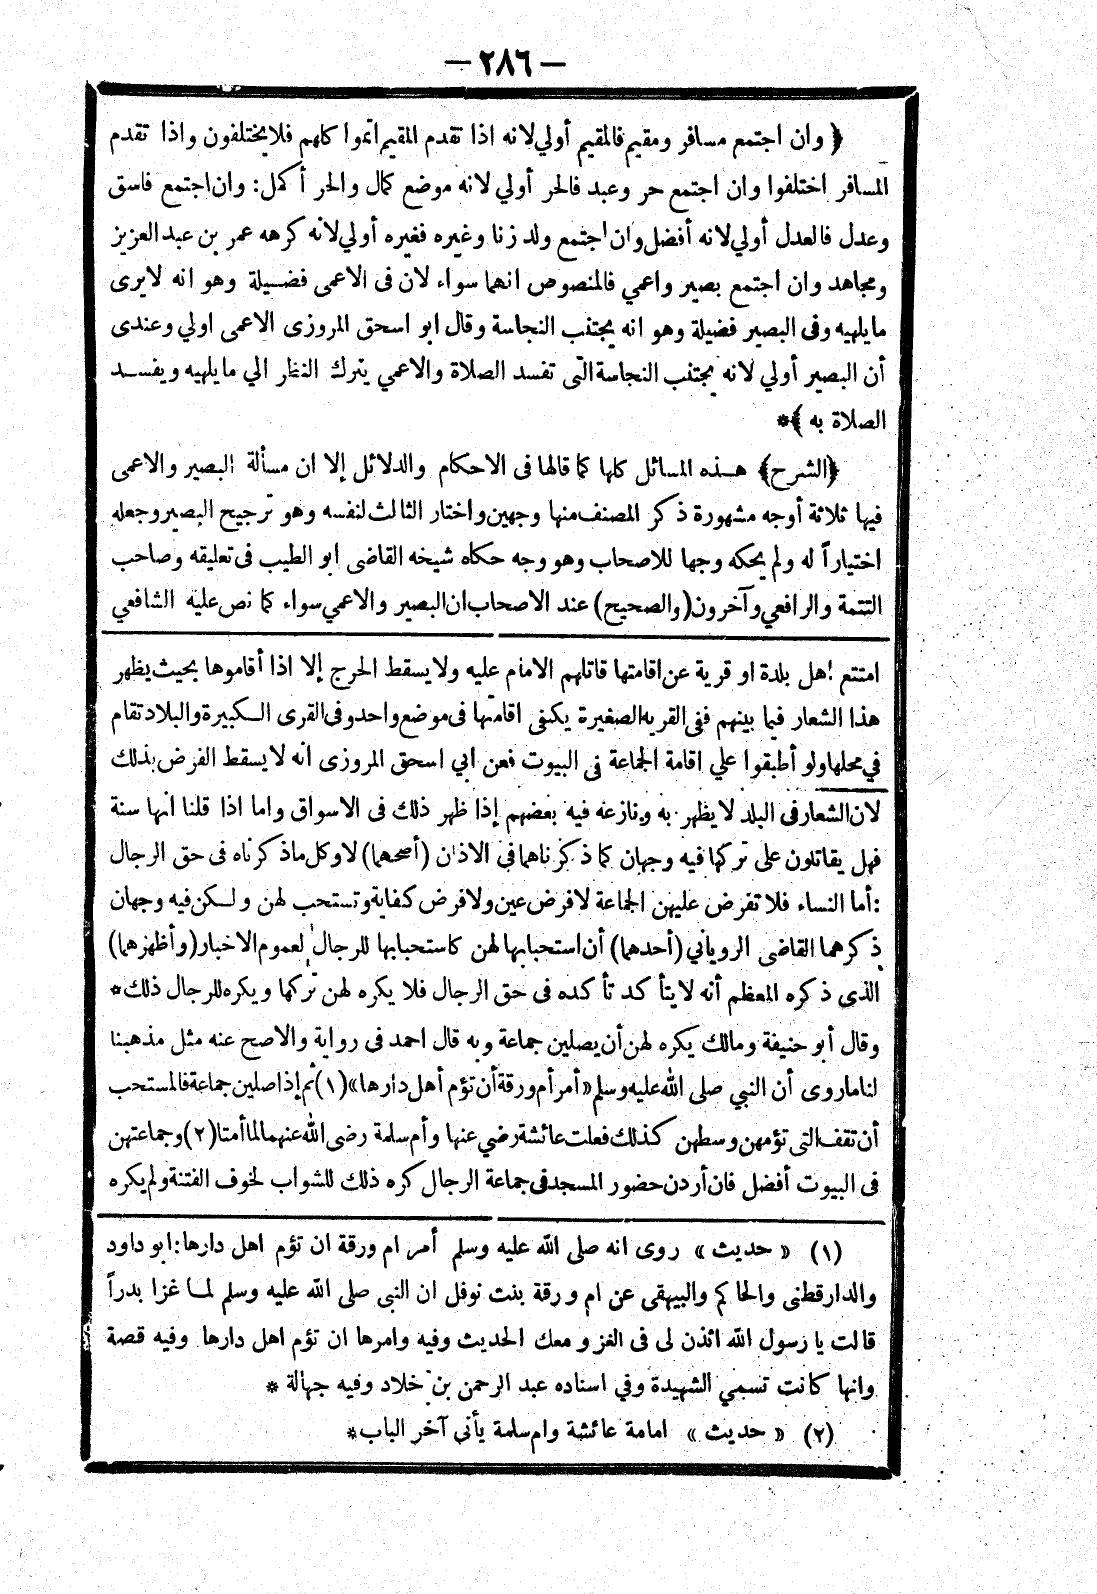 — ٢٨٦ —
﴿ وان اجتمع مسافر ومقيم فالمقيم أولي لانه اذا تقدم المقيم أتموا كلهم فلا يختلفون واذا تقدم
المسافر اختلفوا وان اجتمع حر وعبد فالحر أولي لانه موضع كمال والحر أكمل: وان اجتمع فاسق
وعدل فالعدل أولي لانه أفضل وان اجتمع ولد زنا وغيره فغيره أولي لانه كرهه عمر بن عبد العزيز
ومجاهد وان اجتمع بصير واعمي فالمنصوص انهما سواء لان فى الاعمى فضيلة وهو انه لا يرى
ما يلهيه وفى البصير فضيلة وهو انه يجتنب النجاسة وقال ابو اسحق المروزى الاعمى اولي وعندى
أن البصير أولي لانه يجتنب النجاسة التى تفسد الصلاة والاعمي يترك النظر الي ما يلهيه ويفسد
الصلاة به ﴾*
﴿الشرح﴾ هذه المسائل كلها كما قالها فى الاحكام والدلائل إلا ان مسألة البصير والاعمى
فيها ثلاثة أوجه مشهورة ذكر المصنف منها وجهين واختار الثالث لنفسه وهو ترجيح البصير وجعله
اختياراً له ولم يحكه وجها للاصحاب وهو وجه حكاه شيخه القاضى ابو الطيب فى تعليقه وصاحب
التتمة والرافعي وآخرون (والصحيح) عند الاصحاب ان البصير والاعمي سواء كما نص عليه الشافعي
امتنع اهل بلدة او قرية عن اقامتها قاتلهم الامام عليه ولا يسقط الحرج إلا اذا أقاموها بحيث يظهر
هذا الشعار فيما بينهم ففى القرية الصغيرة يكفى اقامتها فى موضع واحد وفى القرى الكبيرة والبلاد تقام
في محلها ولو أطبقوا علي اقامة الجماعة فى البيوت فعن ابي اسحق المروزى انه لا يسقط الفرض بذلك
لان الشعار فى البلد لا يظهر به ونازعه فيه بعضهم إذا ظهر ذلك فى الاسواق واما اذا قلنا انها سنة
فهل يقاتلون على تركها فيه وجهان كما ذكرناهما في الاذان (أصحهما) لا وكل ما ذكرناه فى حق الرجال
: أما النساء فلا تفرض عليهن الجماعة لا فرض عين ولا فرض كفاية وتستحب لهن ولكن فيه وجهان
ذكرهما القاضى الروياني (أحدهما) أن استحبابها لهن كاستحبابها للرجال لعموم الاخبار (وأظهرهما)
الذى ذكره المعظم أنه لا يتأكد تأكده فى حق الرجال فلا يكره لهن تركها ويكره للرجال ذلك*
وقال أبو حنيفة ومالك يكره لهن أن يصلين جماعة وبه قال احمد فى رواية والاصح عنه مثل مذهبنا
لنا ما روى أن النبي صلى الله عليه وسلم «أمر أم ورقة أن تؤم أهل دارها» (١) ثم إذا صلين جماعة فالمستحب
أن تقف التى تؤمهن وسطهن كذلك فعلت عائشة رضي عنها وأم سلمة رضى الله عنهما لما أمتا (٢) وجماعتهن
فى البيوت أفضل فان أردن حضور المسجد فى جماعة الرجال كره ذلك للشواب لخوف الفتنة ولم يكره
(١) « حديث » روى انه صلى الله عليه وسلم أمر ام ورقة ان تؤم اهل دارها: ابو داود
والدارقطنى والحاكم والبيهقى عن ام ورقة بنت نوفل ان النبى صلى الله عليه وسلم لما غزا بدراً
قالت يا رسول الله ائذن لى فى الغزو معك الحديث وفيه وامرها ان تؤم اهل دارها وفيه قصة
وانها كانت تسمي الشهيدة وفي اسناده عبد الرحمن بن خلاد وفيه جهالة *
(٢) « حديث » امامة عائشة وام سلمة يأتى آخر الباب*